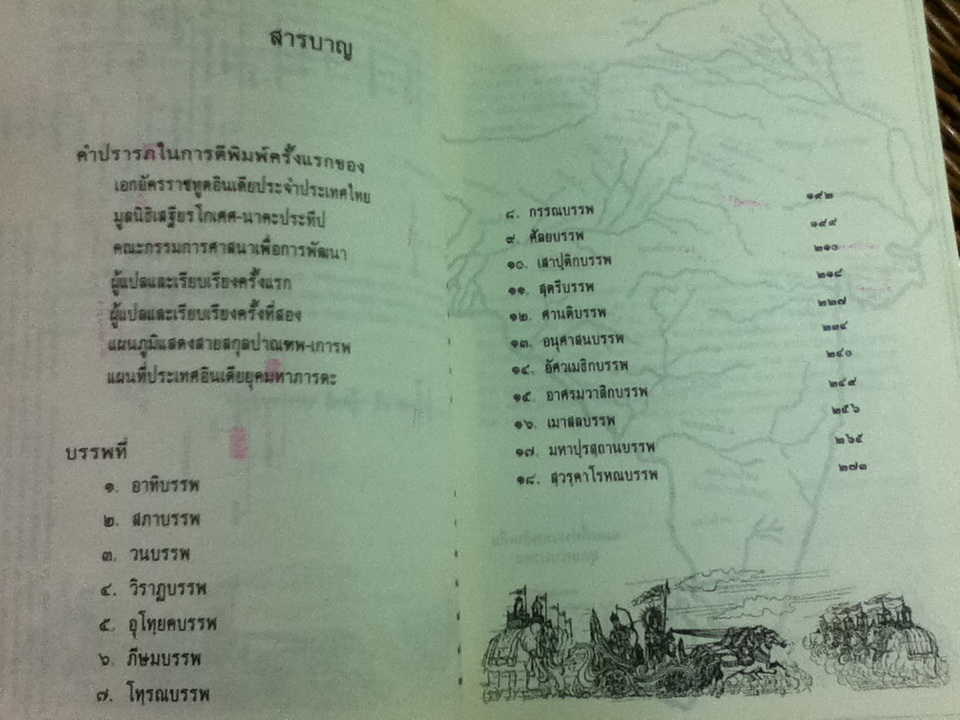 สารบาญ
คำปรารภในการตีพิมพ์ครั้งแรกของ
เอกอัครราชทูตอินเดียประจำประเทศไทย
มูลนิธิเสฐียรโกเศศ-นาคะประทีป
คณะกรรมการศาสนาเพื่อการพัฒนา
ผู้แปลและเรียบเรียงครั้งแรก
ผู้แปลและเรียบเรียงครั้งที่สอง
แผนภูมิแสดงสายสกุลปาณฑพ-เการพ
แผนที่ประเทศอินเดียยุคมหาภารตะ
บรรพที่
๑. อาทิบรรพ
๒. สภาบรรพ
๓. วนบรรพ
๔. วิราฏบรรพ
๕. อุโทฺยคบรรพ
๖. ภีษมบรรพ
๗. โทฺรณบรรพ
๘. กรรณบรรพ ๑๙๒
๙. ศัลยบรรพ ๑๙๙
๑๐. เสาปฺติกบรรพ ๒๑๐
๑๑. สฺตรีบรรพ ๒๑๘
๑๒. ศานติบรรพ ๒๒๗
๑๓. อนุศาสนบรรพ ๒๓๔
๑๔. อัศวเมธิกบรรพ ๒๔๐
๑๕. อาศรมวาสิกบรรพ ๒๔๙
๑๖. เมาสลบรรพ ๒๕๖
๑๗. มหาปฺรสฺถานบรรพ ๒๖๕
๑๘. สฺวรฺคาโรหณบรรพ ๒๗๑